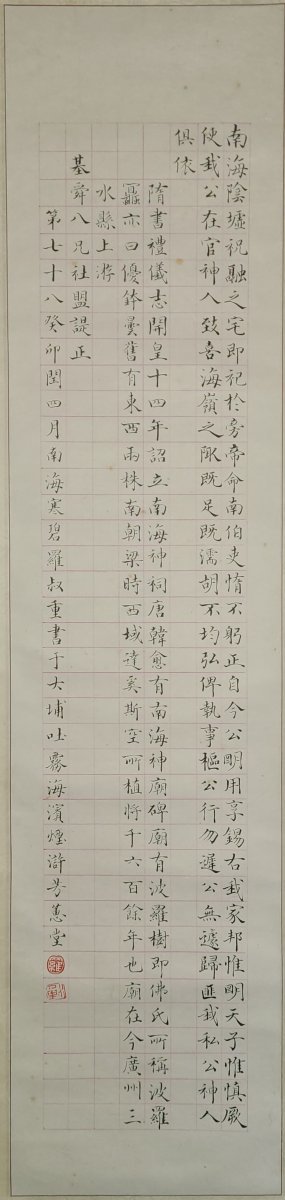 南海陰墟祝融之宅即祀於旁帝命南伯吏惰不躬正自今公明用享錫右我家邦惟明天子惟慎厥
使我公在官神人致喜海嶺之陬既足既濡胡不均弘俾執事樞公行勿遲公無遽歸匪我私公神人
俱依
隋書禮儀志開皇十四年詔立南海神祠唐韓愈有南海神廟碑廟有波羅樹即佛氏所稱波羅
亦曰優鉢曇舊有東西兩株南朝梁時西域達奚斯空所植將千六百餘年也廟在今廣州三
水縣上游
基舜八兄社盟諟正
第七十八癸卯閏四月南海寒碧羅叔重書于大埔吐露海濱煙滸芳蕙堂
羅